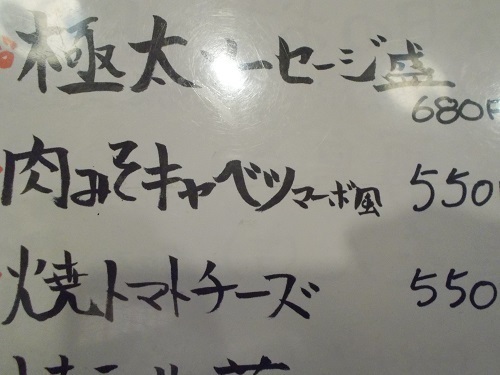 極太ソーセージ盛
680円
肉みそキャベツマーボ風 550
焼トマトチーズ 550